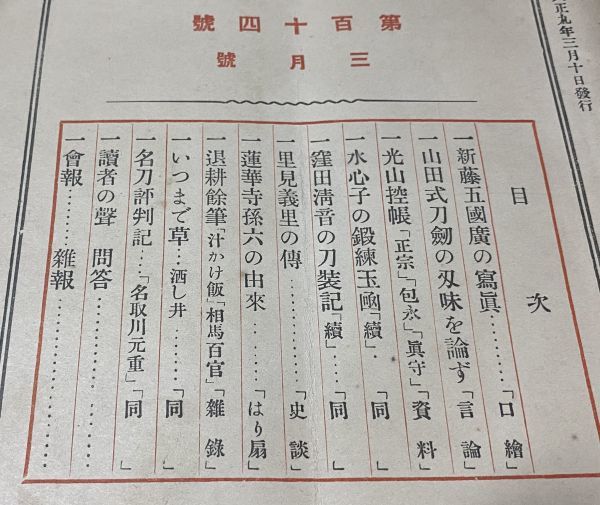 正九年三月十日發行
第百十四號
三月號
目次
一新藤五國廣の寫眞………「口繪」
一山田式刀劍の刄味を論ず「言論」
一光山控帳「正宗」「包永」「眞守」「資料」
一水心子の鍛練玉凾「續」．「同」
一窪田淸音の刀装記「續」…「同」
一里見義里の傳…………「史談」
一蓮華寺孫六の由來………「はり扇」
一退耕餘筆「汁かけ飯」「相馬百官」「雜錄」
一いつまで草…洒し井………「同」
一名刀評判記…「名取川元重」「同」
一讀者の聲 問答…………
一會報………雜報…………